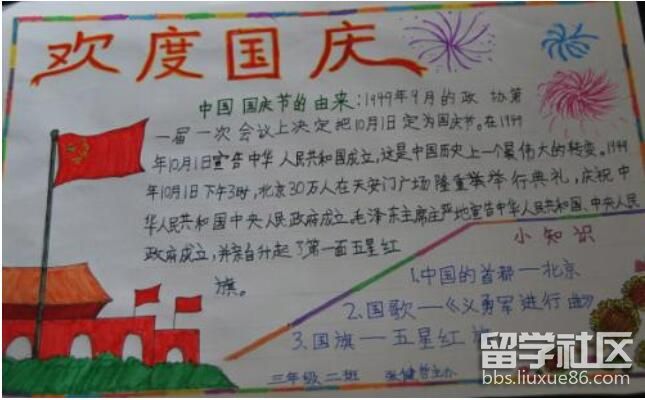 欢度国庆
中国国庆节的由来:1949年9月的政协第
一届一次会议上决定把10月1日定为国庆节。在1949
年10月1日宣告中华人民共和国成立,这是中国历史上一个最伟大的转变。1949
年10月1日下午3时,北京30万人在天安门广场隆重举行典礼,庆祝中
华人民共和国中央人民政府成立。毛泽东主席庄严地宣告中华人民共和国、中央人民
政府成立,并亲自升起了第一面五星红
旗。
小知识
1.中国的首都—北京
2.国歌—《义勇军进行曲》
3.国旗—五星红旗
三年级二班
留学社区
bbs.liuxue86.com